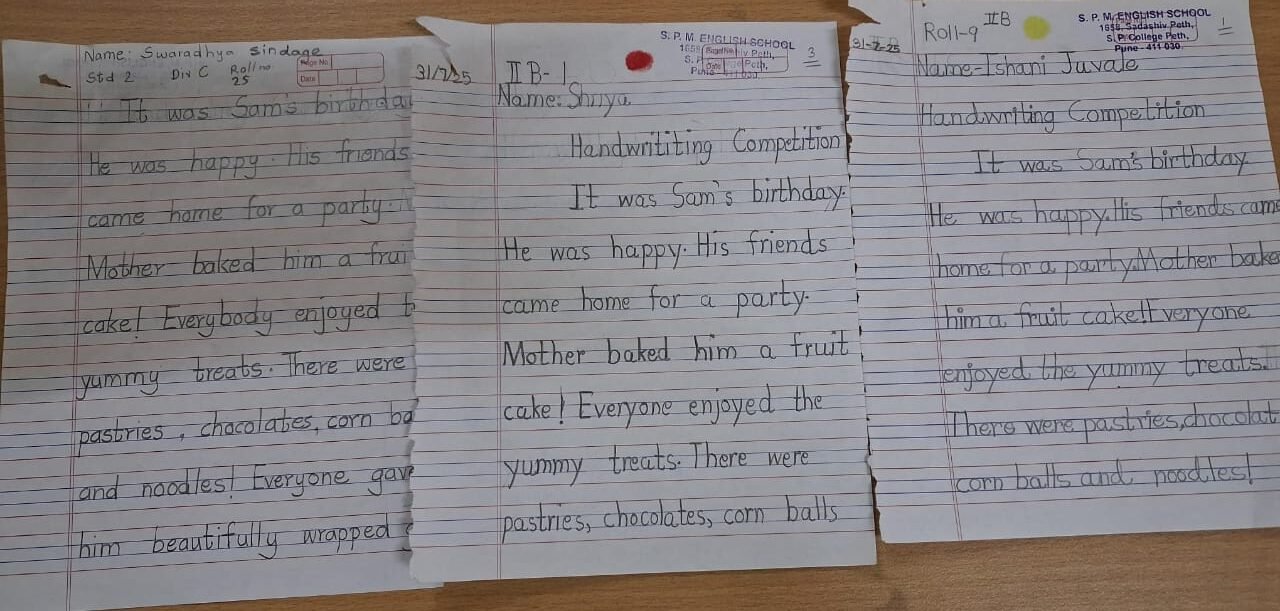 Name: Swaradhya Sindage
Std 2 Div C Roll no 25
Page No.
Date
It was Sam's birthday
He was happy. His friends
came home for a party.
Mother baked him a frui
cake! Everybody enjoyed t
yummy treats. There were
pastries, chocolates, corn ba
and noodles! Everyone gave
him beautifully wrapped
S. P. M. ENGLISH SCHOOL
3
31/7/25
II B-1
Name: Shriya
Handwrititing Competition
It was Sam's birthday.
He was happy. His friends
came home for a party.
Mother baked him a fruit
cake! Everyone enjoyed the
yummy treats. There were
pastries, chocolates, corn balls
II B
S. P. M. ENGLISH SCHOOL
1658, Sadashiv Peth,
S. P. College Peth,
Pune - 411 030.
1
31-7-25
Roll-9
Name-Ishani Juvale
Handwriting Competition
It was Sam's birthday
He was happy. His friends came
home for a party. Mother bake
him a fruit cake! Everyone
enjoyed the yummy treats.
There were pastries, chocolat
corn balls and noodles!